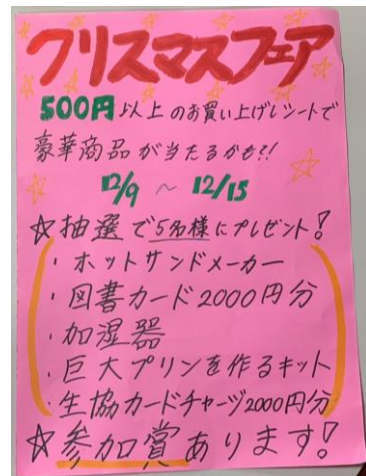 クリスマスフェア
500円以上のお買い上げレシートで
豪華商品が当たるかも?!
12/9 ~ 12/15
☆抽選で5名様にプレゼント!
・ホットサンドメーカー
・図書カード2000円分
・加湿器
・巨大プリンを作るキット
・生協カードチャージ2000円分
☆参加賞あります!